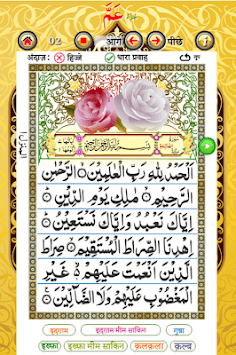 عَمَّ
02 आगे पीछे
अंदाज़ : हिज्जे धारा प्रवाह
بِسْمِ اللّٰهِ الرَّحْمٰنِ الرَّحِيْمِ
اَلْحَمْدُ لِلّٰهِ رَبِّ الْعٰلَمِيْنَ ۙ الرَّحْمٰنِ
الرَّحِيْمِ ۙ مٰلِكِ يَوْمِ الدِّيْنِ ؕ
اِيَّاكَ نَعْبُدُ وَاِيَّاكَ نَسْتَعِيْنُ ؕ
اِهْدِنَا الصِّرَاطَ الْمُسْتَقِيْمَ ۙ صِرَاطَ
الَّذِيْنَ اَنْعَمْتَ عَلَيْهِمْ ۙ غَيْرِ
الْمَغْضُوْبِ عَلَيْهِمْ وَلَا الضَّآلِّيْنَ
इदग़ाम इदग़ाम मीम साकिन गुन्ना
इख्फ़ा इख्फ़ा मीम साकिन क़लक़ला क़ल्ब